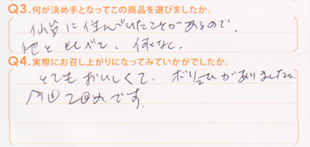 Q3.何が決め手となってこの商品を選びましたか。
仙台に住んでいたことがあるので、
他としらべて、何となく
Q4.実際にお召し上がりになってみていかがでしたか。
とてもおいしくて、ボリュームがありました。
今回2回めです。